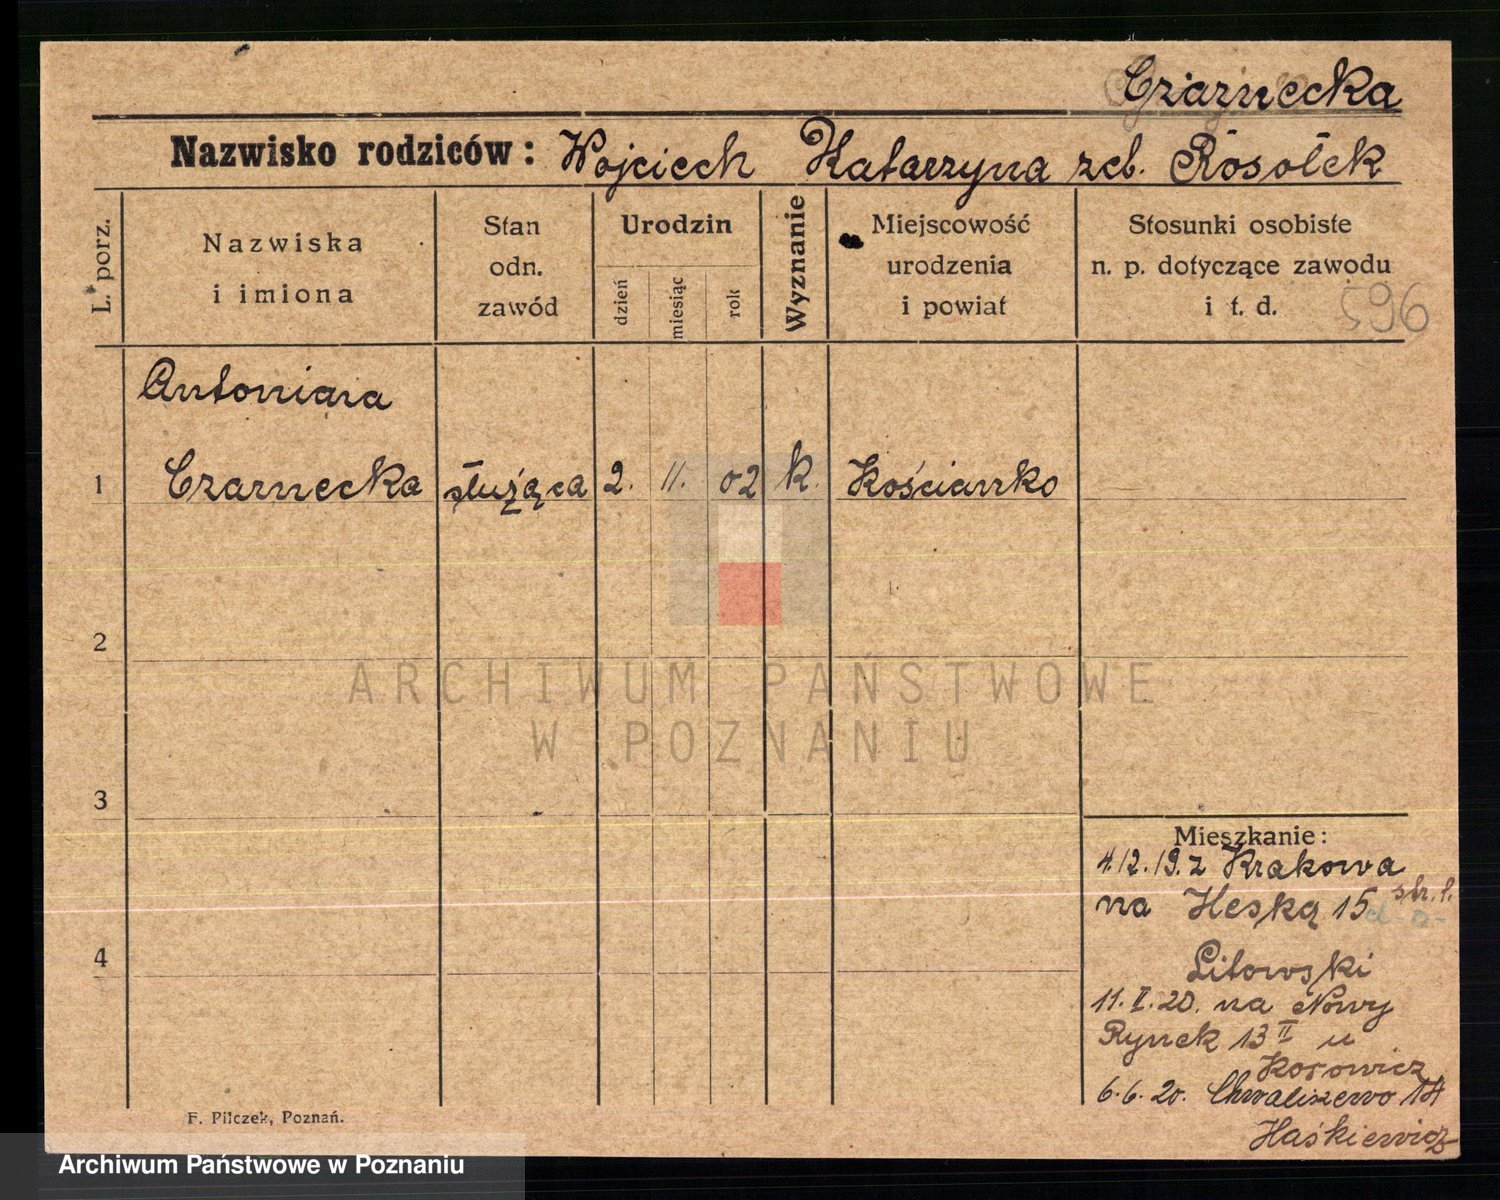 Czarnecka
Nazwisko rodziców: Wojciech Katarzyna zeb. Rosołek
L. porz.
Nazwiska
i imiona
Stan
odn.
zawód
Urodzin
dzień
miesiąc
rok
Wyznanie
Miejscowość
urodzenia
i powiat
Stosunki osobiste
n. p. dotyczące zawodu
i t. d.
596
Antonina
1 Czarnecka służąca 2. 11. 02 k. Kościanko
2
3
4
Mieszkanie:
4.12.19. z Krakowa
na Heską 15 str. l.
Litowski
11. I. 20. na Nowy
Rynek 13 II u
Kosowicz
6.6.20. Chwaliszewo 14
Haśkiewicz
F. Pilczek, Poznań.
ARCHIWUM PAŃSTWOWE
W POZNANIU
Archiwum Państwowe w Poznaniu